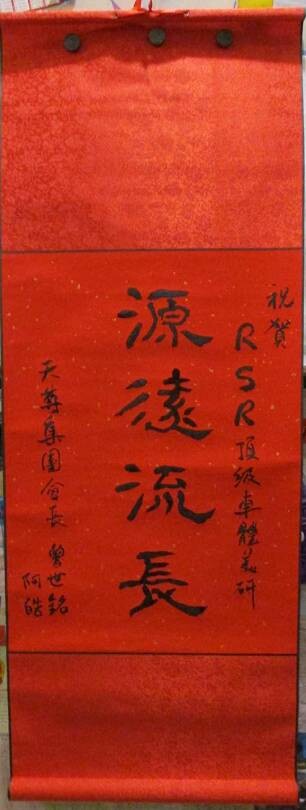 祝賀
RSR頂級車體美研
源遠流長
天尊集團會長 曾世銘
阿皓